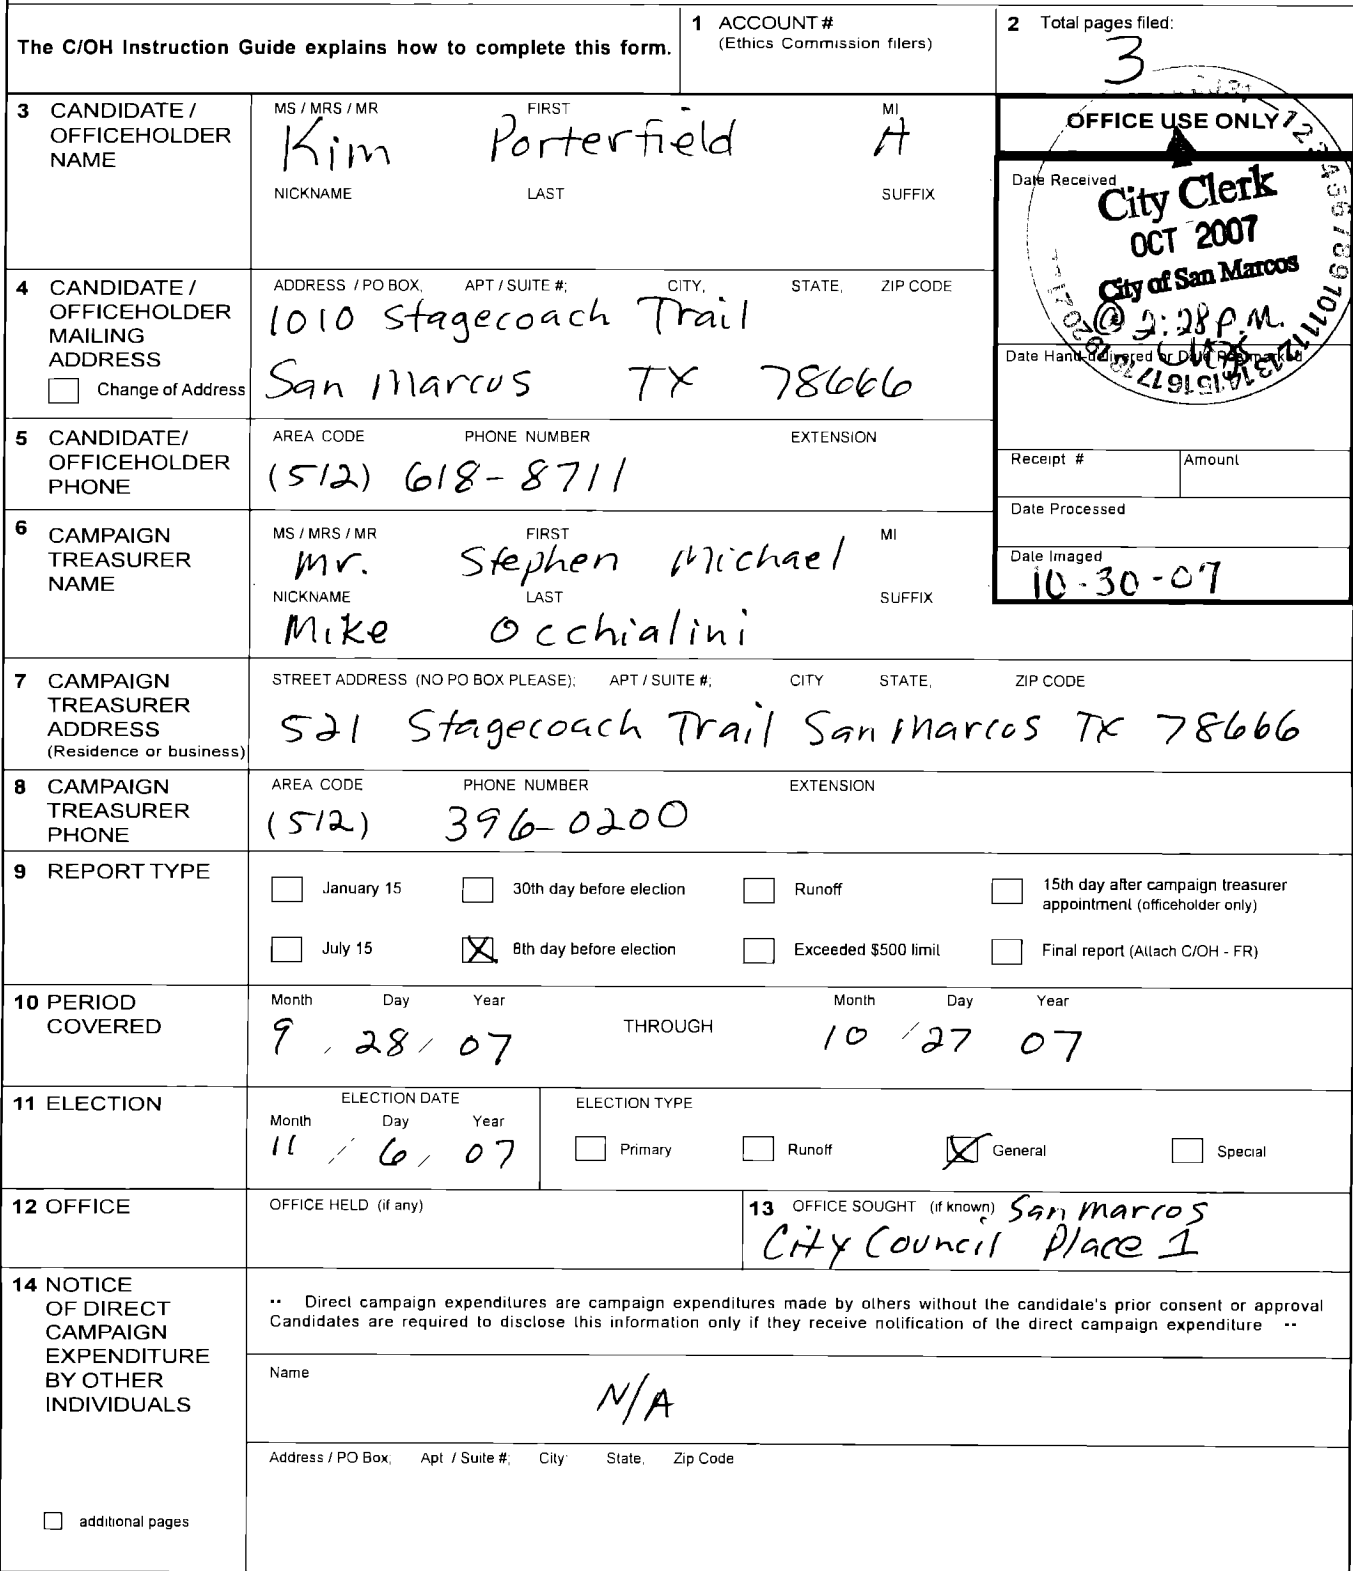 The C/OH Instruction Guide explains how to complete this form.
1 ACCOUNT #
(Ethics Commission filers)
2 Total pages filed:
3
3 CANDIDATE / OFFICEHOLDER NAME
MS / MRS / MR FIRST MI
Kim Porterfield A
NICKNAME LAST SUFFIX
OFFICE USE ONLY
Date Received
City Clerk
OCT 2007
City of San Marcos
@ 2:28 P.M.
Date Hand-delivered or Date Postmarked
Receipt # Amount
Date Processed
Date Imaged
10-30-07
4 CANDIDATE / OFFICEHOLDER MAILING ADDRESS
Change of Address
ADDRESS / PO BOX, APT / SUITE #; CITY, STATE, ZIP CODE
1010 Stagecoach Trail
San Marcos TX 78666
5 CANDIDATE/ OFFICEHOLDER PHONE
AREA CODE PHONE NUMBER EXTENSION
(512) 618-8711
6 CAMPAIGN TREASURER NAME
MS / MRS / MR FIRST MI
Mr. Stephen Michael
NICKNAME LAST SUFFIX
Mike Occhialini
7 CAMPAIGN TREASURER ADDRESS
(Residence or business)
STREET ADDRESS (NO PO BOX PLEASE); APT / SUITE #; CITY STATE, ZIP CODE
521 Stagecoach Trail San Marcos TX 78666
8 CAMPAIGN TREASURER PHONE
AREA CODE PHONE NUMBER EXTENSION
(512) 396-0200
9 REPORT TYPE
January 15 30th day before election Runoff 15th day after campaign treasurer appointment (officeholder only)
July 15 X 8th day before election Exceeded $500 limit Final report (Attach C/OH - FR)
10 PERIOD COVERED
Month Day Year THROUGH Month Day Year
9 / 28 / 07 10 / 27 07
11 ELECTION
ELECTION DATE
Month Day Year
11 / 6 / 07
ELECTION TYPE
Primary Runoff X General Special
12 OFFICE
OFFICE HELD (if any)
13 OFFICE SOUGHT (if known) San Marcos
City Council Place 1
14 NOTICE OF DIRECT CAMPAIGN EXPENDITURE BY OTHER INDIVIDUALS
·· Direct campaign expenditures are campaign expenditures made by others without the candidate's prior consent or approval
Candidates are required to disclose this information only if they receive notification of the direct campaign expenditure ··
Name
N/A
Address / PO Box; Apt / Suite #; City State, Zip Code
additional pages